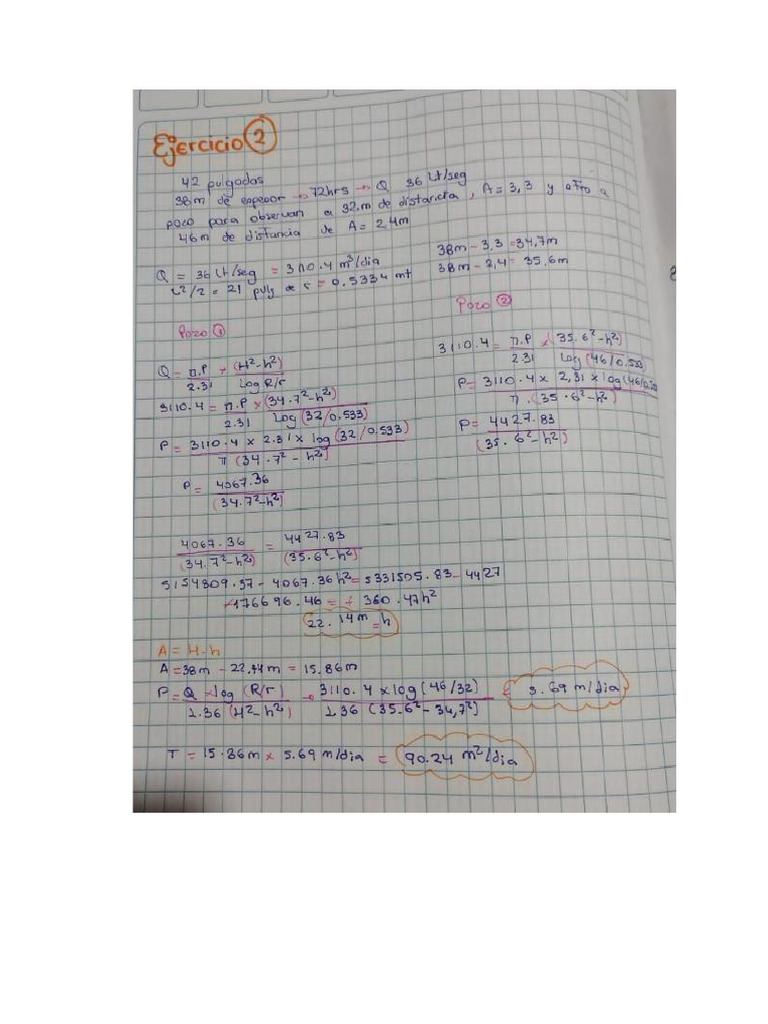 Ejercicio 2
42 pulgadas
38m de espesor → 72hrs → Q 36 Lt/seg
pozo para observan a 32.m de distancia, A = 3,3 y otro a
46m de distancia de A = 2.4m
38m - 3,3 = 34,7m
38m - 2,4 = 35,6m
Q = 36 Lt/seg = 3110.4 m³/dia
42/2 = 21 pulg de r = 0.5334 mt
Pozo 1
Q = π.P / 2.31 × (H²-h²) / Log R/r
3110.4 = π.P / 2.31 × (34.7²-h²) / log (32/0.533)
P = 3110.4 × 2.31 × log (32/0.533) / π (34.7² - h²)
P = 4067.36 / (34.7²-h²)
Pozo 2
3110.4 = π.P / 2.31 × (35.6²-h²) / Log (46/0.533)
P = 3110.4 × 2,31 × log (46/0.53 / π.(35.6²-h²)
P = 4427.83 / (35.6²-h²)
4067.36 / (34.7²-h²) = 4427.83 / (35.6²-h²)
5154809.57 - 4067.36h² = 5331505.83 - 4427
-176696.46 = - 360.47h²
22.14m = h
A = H-h
A = 38m - 22.14m = 15.86m
P = Q × log (R/r) / 1.36 (H²-h²) → 3110.4 × log (46/32) / 1.36 (35.6²-34,7²) = 5.69 m/dia
T = 15.86m × 5.69 m/dia = 90.24 m²/dia